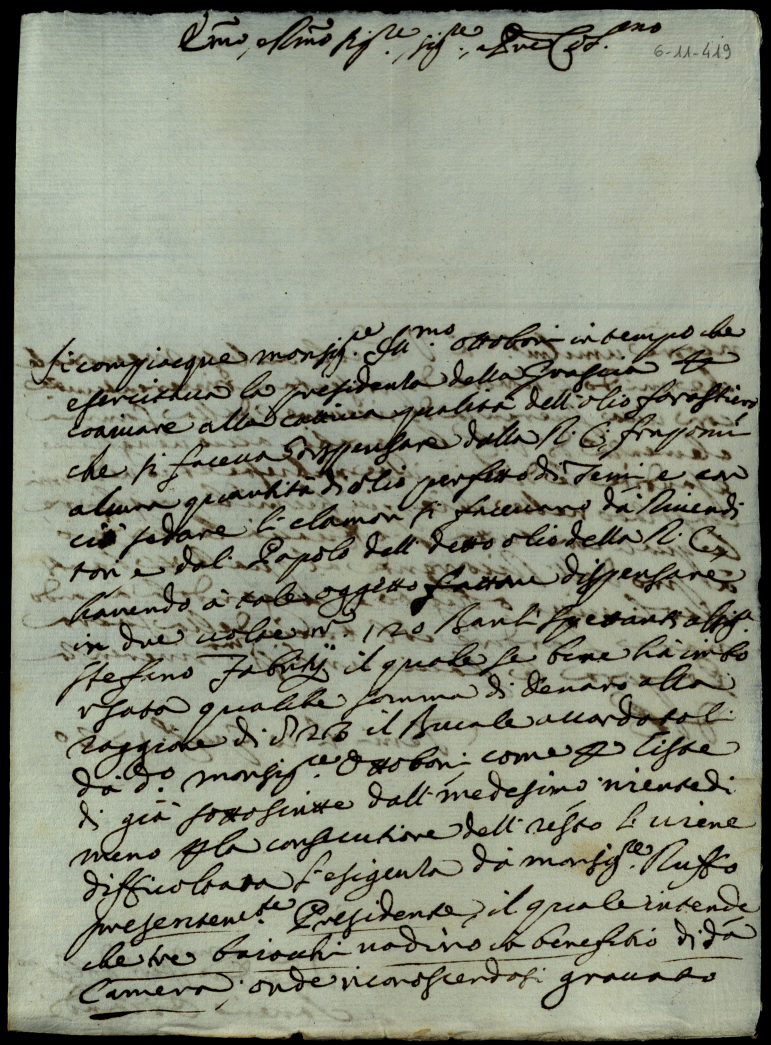 Em̃o, e Rm̃o sig.re, sig.re, e Pne Col.mo
6-11-419
Si compiacque monsig.re Ill.mo Ottoboni in tempo che
esercitaua la presidenta della Grascia
ouiare alla cattiua qualità dell'olio forastiero
che si faceua dispensare dalla R. C.
alcuna quantità di olio perfetto di Terni e con
ciò sedare li clamori si faceuano dà Riuendi
tori e dal Popolo dell detto olio della R. C.
hauendo à tale oggetto fattone dispensare
in due uolte n.o 120 Barili spettanti al sig.
Steffano Fabritij il quale se bene hà imbo
rsata qualche somma di denaro alla
raggione di 23 il Bucale accordatoli
dà d.o monsig.re Ottoboni come liste
di già sottoscritte dall'medesimo nientedi
meno la consecutione dell'resto li uiene
difficoltata l'esigenta dà monsig.re Ruffo
presentem.te Presidente, il quale intende
che tre baiocchi uadino in benefitio di d.a
Camera, onde riconoscendosi grauato